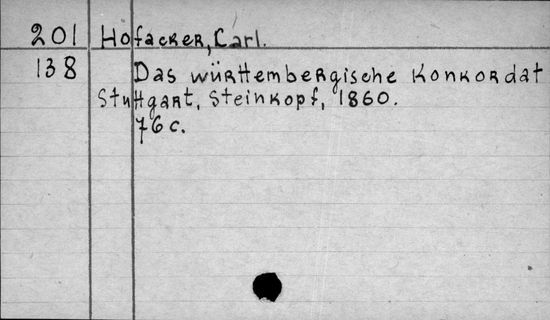 201 Hofacker, Carl.
138 Das württembergische Konkordat
Stuttgart, Steinkopf, 1860.
76 c.